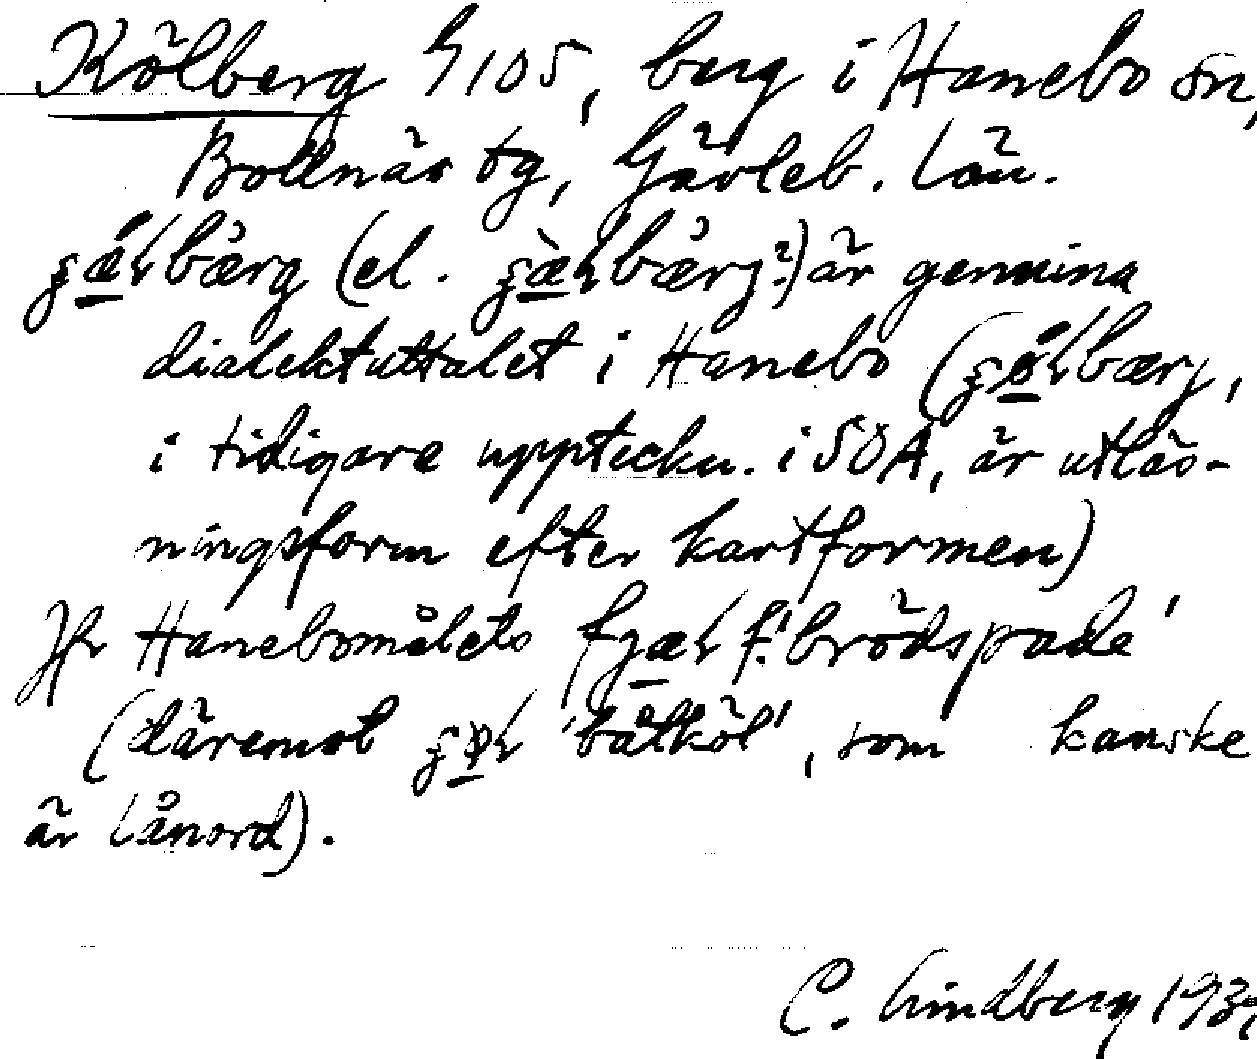 Kölberg G105, berg i Hanebo sn,
Bollnäs tg, Gävleb. län.
(el. är genuina
dialektuttalet i Hanebo (
i tidigare uppteckn. i SOA, är utläs-
ningsform efter kartformen)
Jfr Hanebomålets fjæɽ f. 'brödspade'
(däremot 'båtköl', som kanske
är lånord).
C. Lindberg